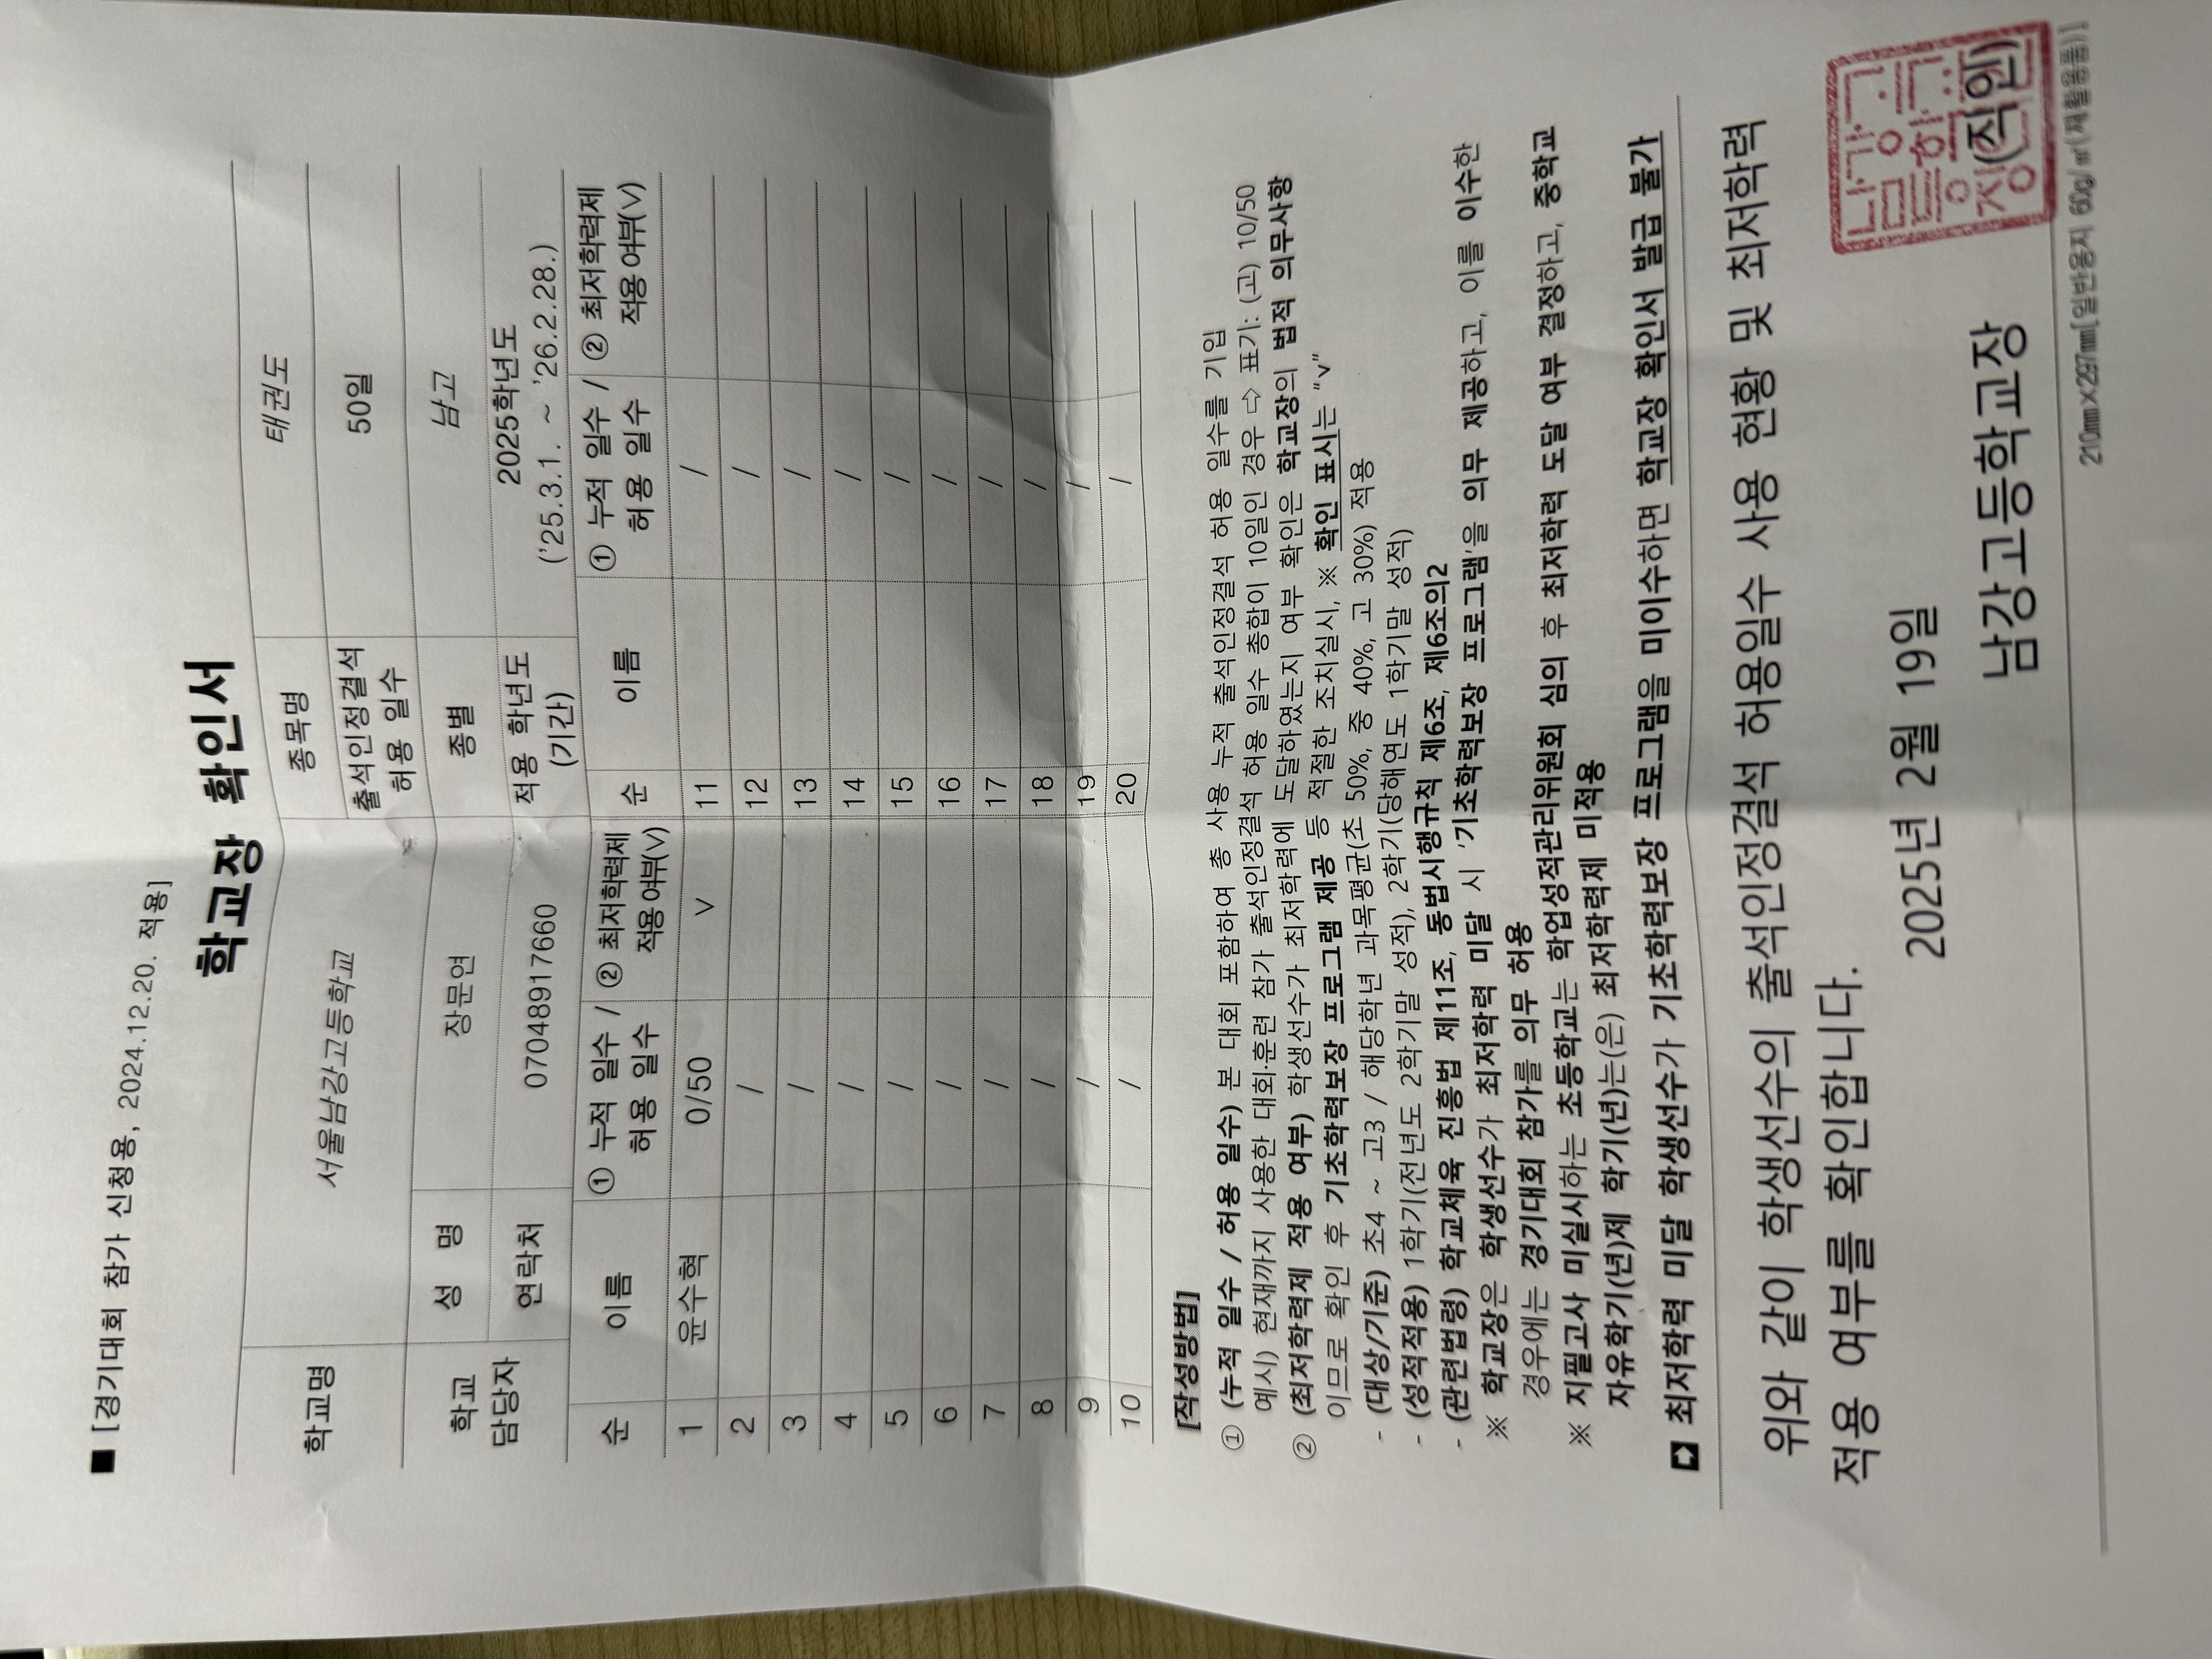 ■ [경기대회 참가 신청용, 2024.12.20. 적용]
학교장 확인서
학교명 서울남강고등학교 종목명 태권도
출석인정결석 허용 일수 50일
학교 담당자 성 명 장문연 종별 남고
연락처 07048917660 적용 학년도 (기간) 2025학년도 ('25.3.1. ~ '26.2.28.)
순 이름 ① 누적 일수 / 허용 일수 ② 최저학력제 적용여부(∨) 순 이름 ① 누적 일수 / 허용 일수 ② 최저학력제 적용여부(∨)
1 윤수혁 0/50 ∨ 11 /
2 / 12 /
3 / 13 /
4 / 14 /
5 / 15 /
6 / 16 /
7 / 17 /
8 / 18 /
9 / 19 /
10 / 20 /
[작성방법]
① (누적 일수 / 허용 일수) 본 대회 포함하여 총 사용 누적 출석인정결석 허용 일수를 기입
예시) 현재까지 사용한 대회·훈련 참가 출석인정결석 허용 일수 총합이 10일인 경우 ⇨ 표기: (고) 10/50
② (최저학력제 적용 여부) 학생선수가 최저학력에 도달하였는지 여부 확인은 학교장의 법적 의무사항
이므로 확인 후 기초학력보장 프로그램 제공 등 적절한 조치실시, ※ 확인 표시는 “∨”
- (대상/기준) 초4 ~ 고3 / 해당학년 과목평균(초 50%, 중 40%, 고 30%) 적용
- (성적적용) 1학기(전년도 2학기말 성적), 2학기(당해연도 1학기말 성적)
- (관련법령) 학교체육 진흥법 제11조, 동법시행규칙 제6조, 제6조의2
※ 학교장은 학생선수가 최저학력 미달 시 '기초학력보장 프로그램'을 의무 제공하고, 이를 이수한
경우에는 경기대회 참가를 의무 허용
※ 지필고사 미실시하는 초등학교는 학업성적관리위원회 심의 후 최저학력 도달 여부 결정하고, 중학교
자유학기(년)제 학기(년)는(은) 최저학력제 미적용
최저학력 미달 학생선수가 기초학력보장 프로그램을 미이수하면 학교장 확인서 발급 불가
위와 같이 학생선수의 출석인정결석 허용일수 사용 현황 및 최저학력
적용 여부를 확인합니다.
2025년 2월 19일
남강고등학교장 (직인)
남강고
등학교
장인
210㎜×297㎜[일반용지 60g/㎡(재활용품)]